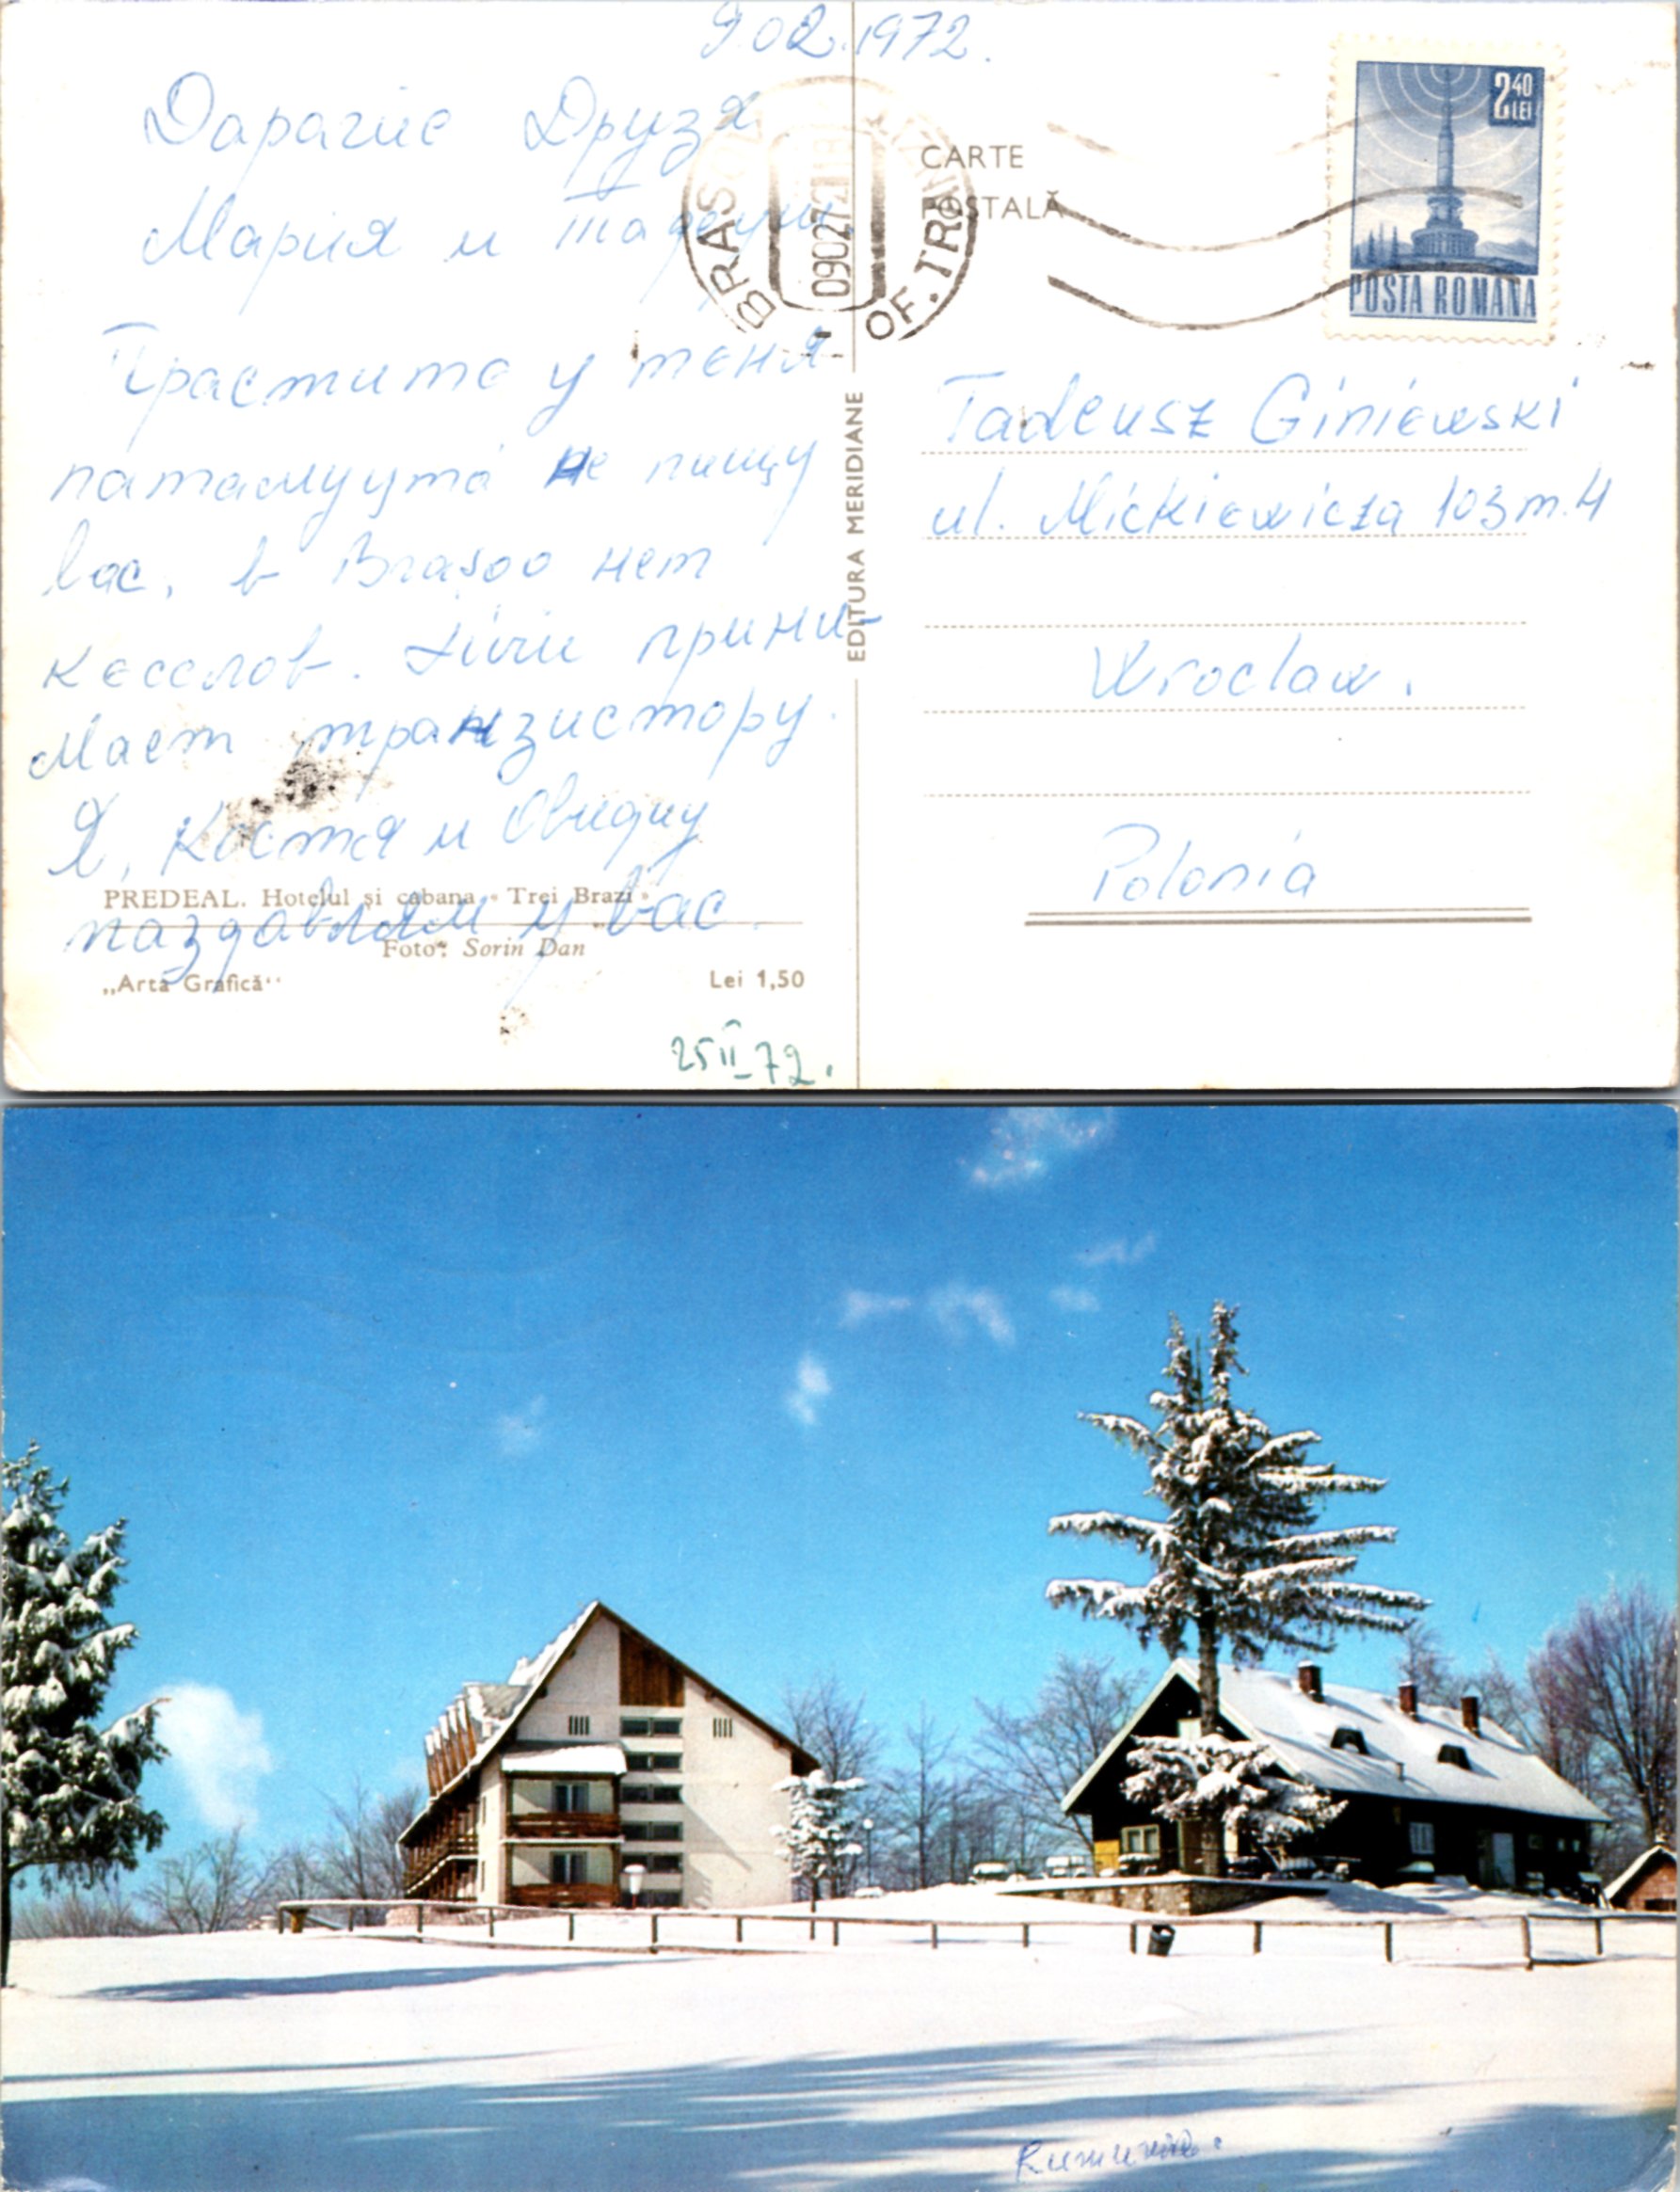 9.02.1972.
Дарагие Друзя
Мария и Тадеуш.
Прастите у меня
патамуута не пищу
вас, в Brașov нет
кесслов. Liviu прини-
мает транзистору.
Я, Костя и Овидиу
паздавлям у вас.
PREDEAL. Hotelul și cabana „Trei Brazi"
Foto: Sorin Dan
„Arta Grafică"
Lei 1,50
25 II 72.
EDITURA MERIDIANE
BRASOV
090272
OF. TR
CARTE
POSTALĂ
2,40
LEI
POSTA ROMANA
Tadeusz Giniewski
ul. Mickiewicza 103 m. 4
Wroclaw.
Polonia